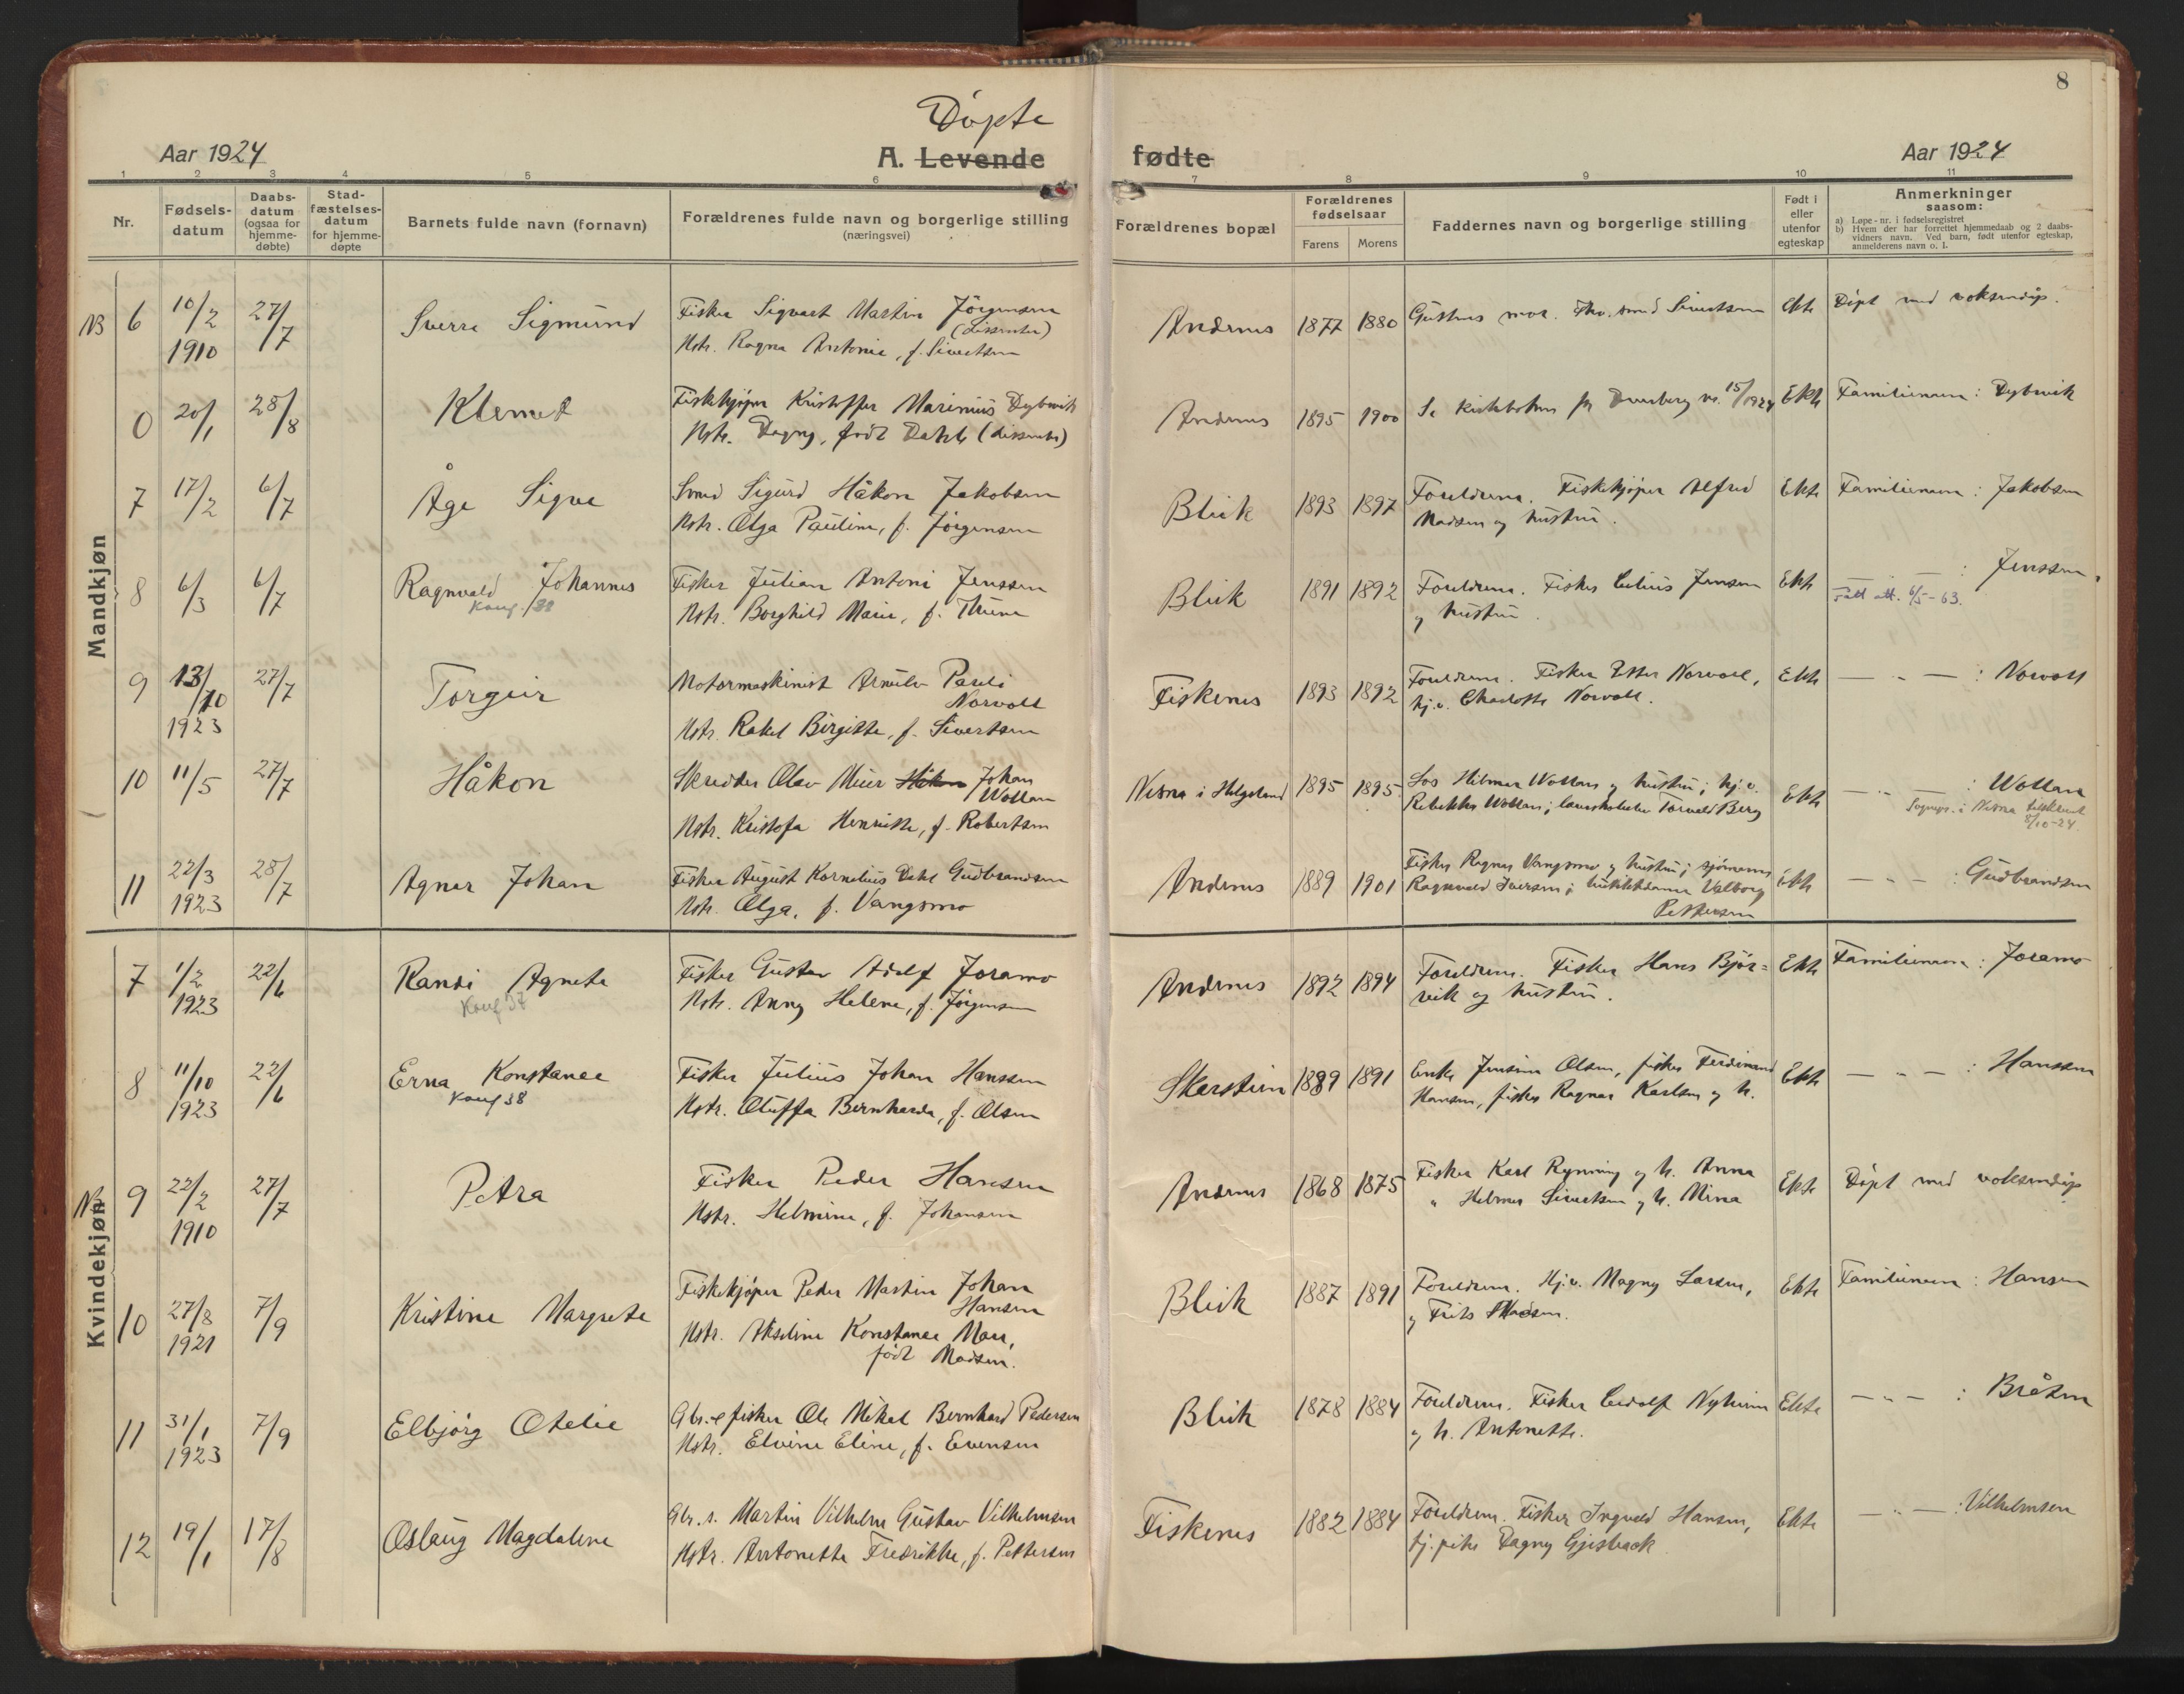 8
Døpte
Aar 1924
A. Levende fødte
Aar 1924
1 2 3 4 5 6 7 8 9 10 11
Nr.
Fødsels-
datum
Daabs-
datum
(ogsaa for
hjemme-
døbte)
Stad-
fæstelses-
datum
for hjemme-
døpte
Barnets fulde navn (fornavn)
Forældrenes fulde navn og borgerlige stilling
(næringsvei)
Forældrenes bopæl
Forældrenes
fødselsaar
Farens Morens
Faddernes navn og borgerlige stilling
Født i
eller
utenfor
egteskap
Anmerkninger
saasom:
a) Løpe-nr. i fødselsregistret
b) Hvem der har forrettet hjemmedaab og 2 daabs-
vidners navn. Ved barn, født utenfor egteskap,
anmelderens navn o. l.
Mandkjøn
NB 6 10/2 1910 27/7 Sverre Sigmund
Fisker Sigvart Martin Jørgensen
(dissenter)
Hstr. Ragna Antonie, f. Sivertsen
Andenes 1877 1880 Ekte Døpt med voksendåp.
0 20/1 28/8 Klemet
Fiskekjøper Kristoffer Marinius Dybwik
Hstr. Dagny, født Dahl (dissenter)
Andenes 1895 1900 15/ 1924 Ekte Familienavn: Dybwik
7 17/2 6/7 Åge Sigve
Smed Sigurd Håkon Jakobsen
Hstr. Olga Pauline, f. Jørgensen
Bleik 1893 1897 Foreldrene. Fiskekjøper Alfred
Madsen og hustru.
Ekte Familienavn: Jakobsen
8 6/3 6/7 Ragnvald Johannes
Konf. /38
Fisker Julian Antoni Jenssen
Hstr. Borghild Marie, f. Thune
Bleik 1891 1892 Foreldrene. Fisker Jensen
og hustru.
Ekte — " — : Jenssen
Fått att. 6/5-63.
9 13/10 1923 27/7 Torgeir
Motormaskinist Arnulv Pauli
Norvoll
Hstr. Rakel Birgitte, f. Sivertsen
Fiskenes 1893 1892 Foreldrene. Fisker Norvoll,
Charlotte Norvoll.
Ekte — " — : Norvoll
10 11/5 27/7 Håkon
Skredder Olav Meier Håkon Johan
Wollan
Hstr. Kristofa Henrikke, f. Robertsen
Nesna i Helgeland 1895 1895 Los Hilmar Wollan og hustru; hj.v.
Rebekka Wollan; Torvald Berg
Ekte — " — : Wollan
Sognepr. i Nesna tilskrevet
8/10-24.
11 22/3 1923 28/7 Agnar Johan
Fisker August Kornelius Dahl Gudbrandsen
Hstr. Olga, f. Vangsmo
Andenes 1889 1901 Fisker Ragnar Vangsmo og hustru; sjømann
Ragnvald Iversen; butikkdame Valborg
Pettersen
Ekte — " — : Gudbrandsen
Kvindekjøn
7 1/2 1923 22/6 Randi Agnete
Konf 37
Fisker Gustav Adolf Joramo
Hstr. Anny Helene, f. Jørgensen
Andenes 1892 1894 Foreldrene. Fisker Hans Bjør=
vik og hustru.
Ekte Familienavn: Joramo
8 11/10 1923 22/6 Erna Konstanse
Konf 38
Fisker Julius Johan Hanssen
Hstr. Oluffa Bernharda, f. Olsen
Skarstein 1889 1891 Enke Jensine Olsen, fisker Ferdinand
Hansen, fisker Ragnar Karlsen og h.
Ekte — " — : Hanssen
NB 9 22/2 1910 27/7 Petra
Fisker Peder Hansen
Hstr. Helmine, f. Johansen
Andenes 1868 1875 Fisker Karl Rynning og h. Anna
" Helmer Sivertsen og h. Mina
Ekte Døpt med voksendåp
10 27/8 1921 7/9 Kristine Margrete
Fiskekjøper Peder Martin Johan
Hansen
Hstr. Akseline Konstanse Marie,
født Madsen.
Bleik 1887 1891 Foreldrene. Hj.v. Magny Larsen,
og Frits Madsen.
Ekte Familienavn: Hansen
11 31/1 1923 7/9 Elbjørg Otelie
Gbr. & fisker Ole Mikal Bernhard Pedersen
Hstr. Elvine Eline, f. Evensen
Bleik 1878 1884 Foreldrene. Fisker Nyheim
og h. Antonette.
Ekte — " — : Bråten
12 19/1 17/8 Oslaug Magdalene
Gbr. s. Martin Vilhelm Gustav Vilhelmsen
Hstr. Antonette Fredrikke, f. Pettersen
Fiskenes 1882 1884 Foreldrene. Fisker Ingvald Hansen,
tj.pike Dagny
Ekte — " — : Vilhelmsen